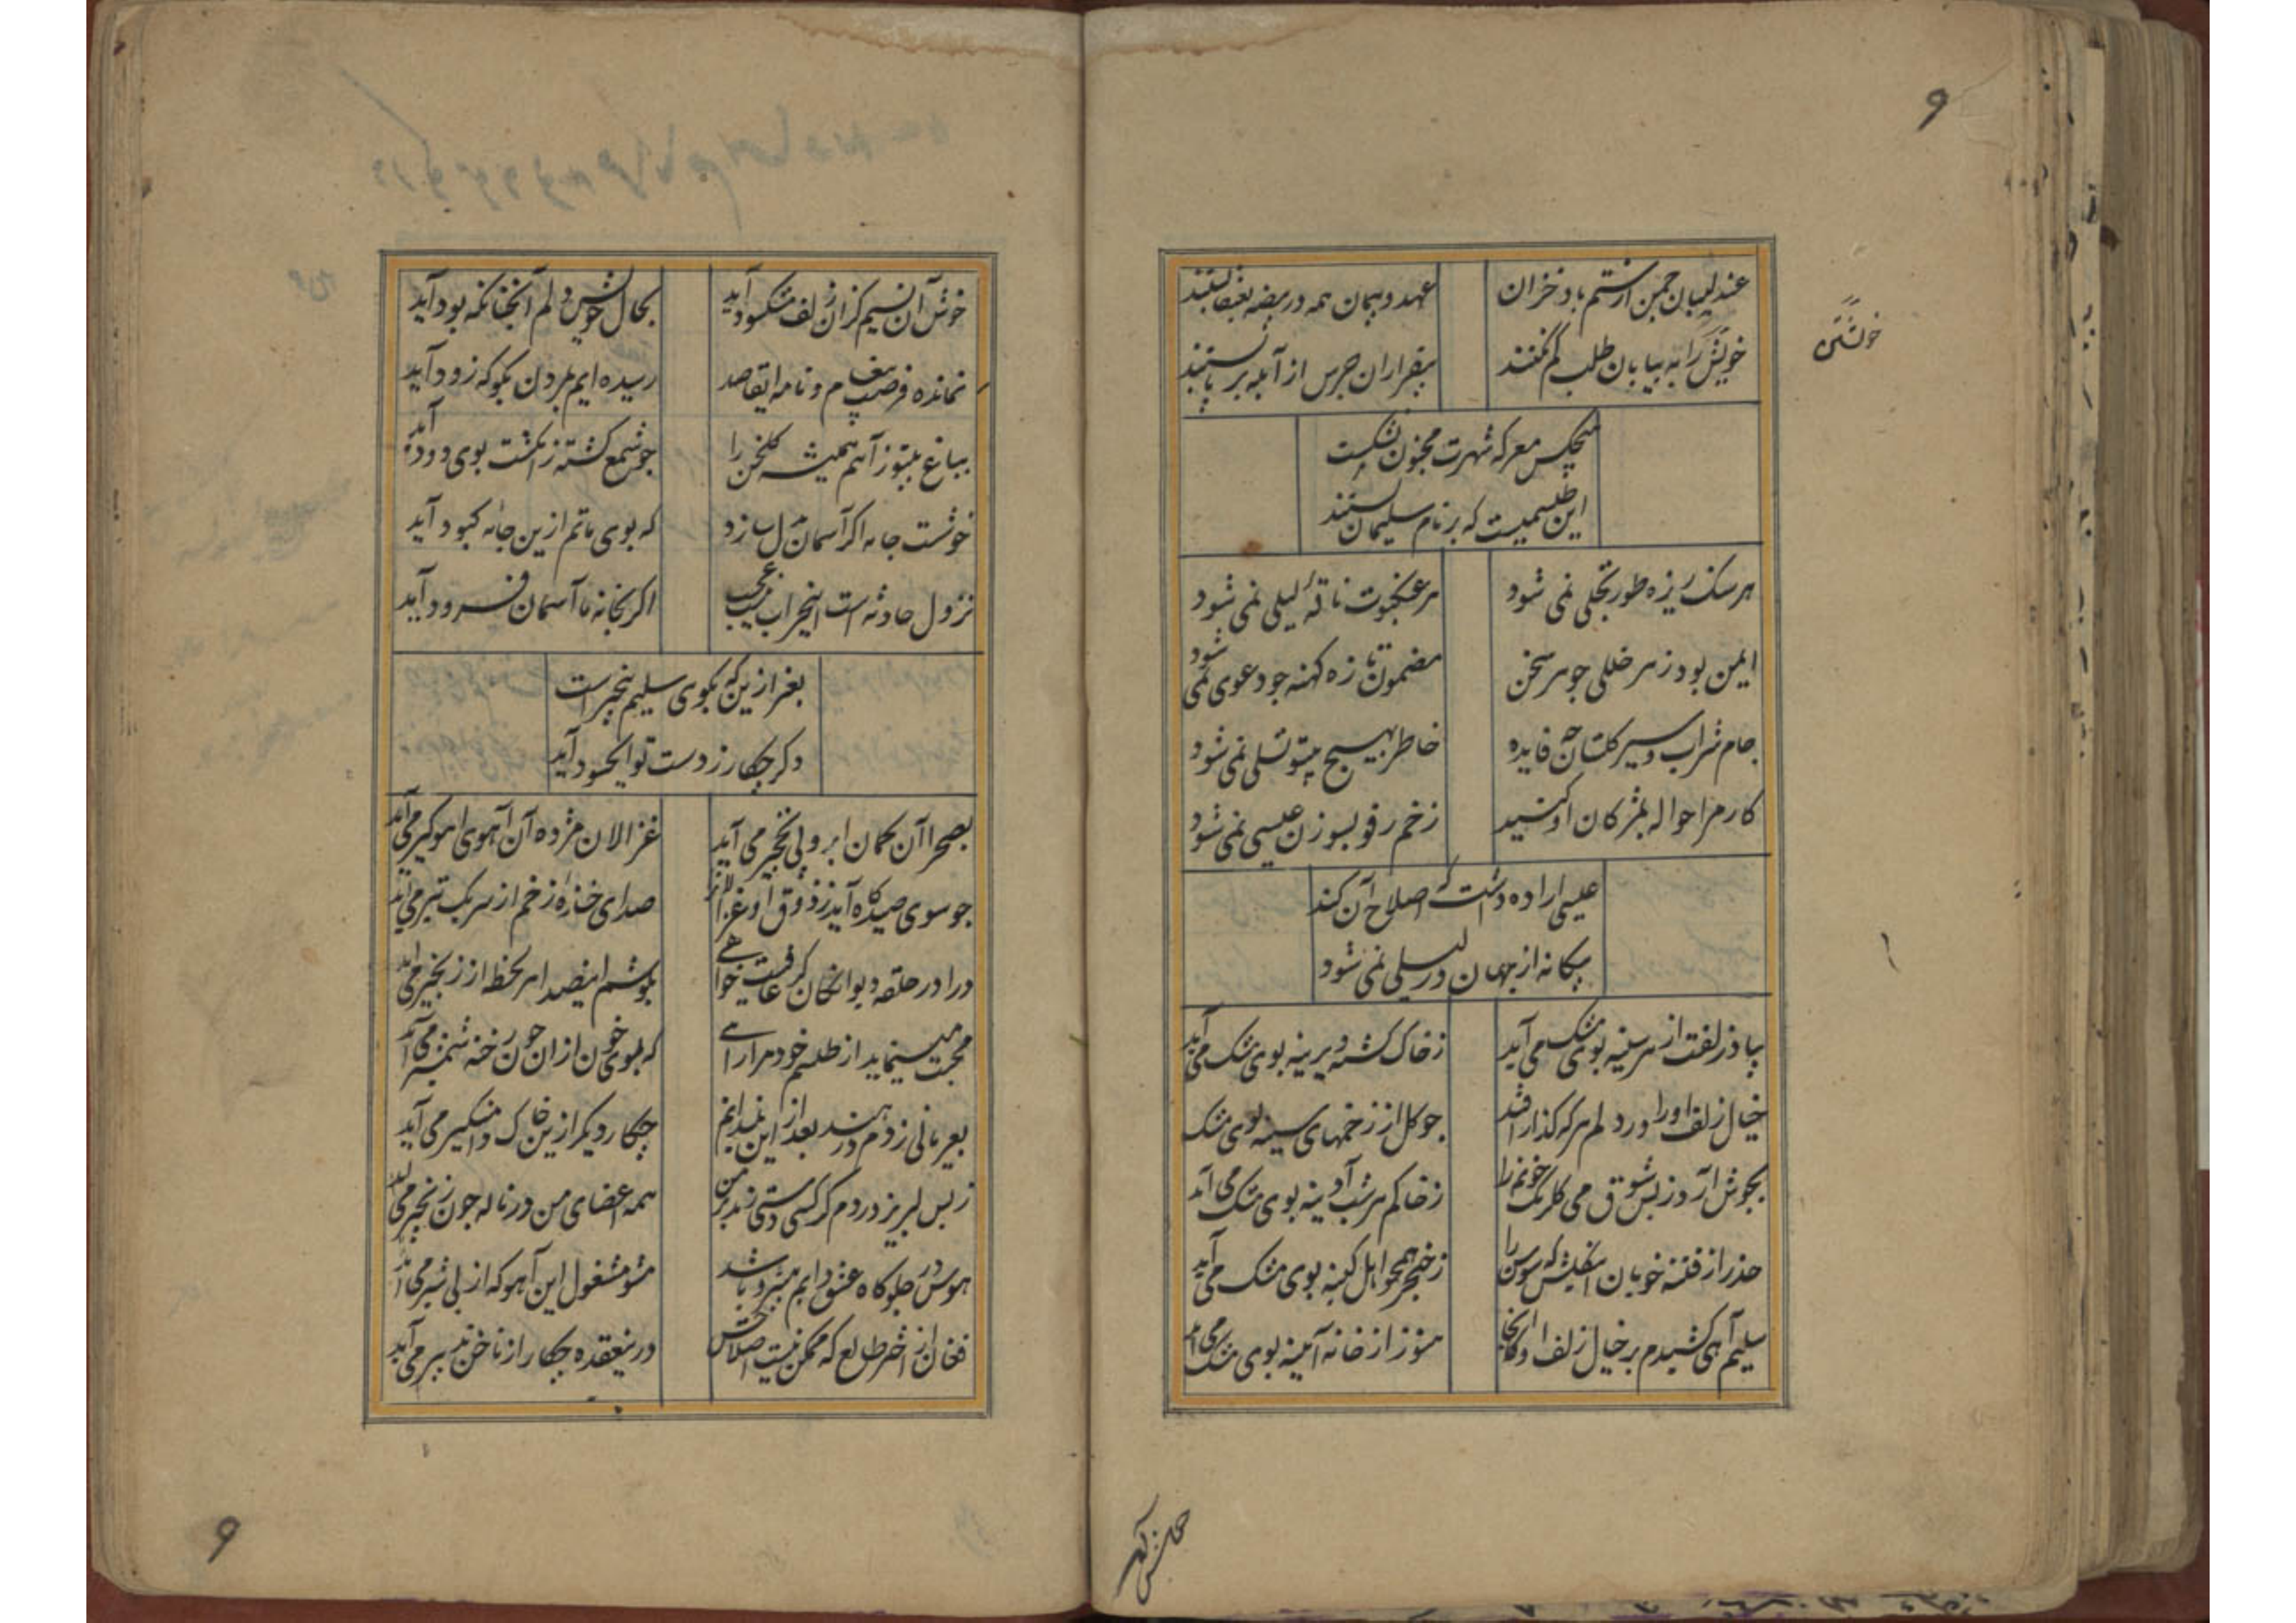 ۹
عندلیبان چمن از ستم باد خزان
عهد و پیمان همه در بیضه بعنقا بستند
خویش را به بیابان طلب کم نکنند
خویشتن
بیقراران جرس از آبله بر پا بستند
هیچکس معرکه شهرت مجنون نشکست
این طلسمیست که بر نام سلیمان بستند
هر سنک ریزه طور تجلی نمی شود
هر عنکبوت ناقهٔ لیلی نمی شود
ایمن بود ز هر خللی جوهر سخن
مضمون تازه کهنه چو دعوی نمی شود
جام شراب و سیر کلستان چه فایده
خاطر بهیچ بیتو تسلی نمی شود
کار مرا حواله بمژکان او کنید
زخم رفو بسوزن عیسی نمی شود
عیسی اراده داشت که اصلاح آن کند
بیکانه از جهان در لیلی نمی شود
بیاد زلفت از هر سینه بوی مشک می آید
ز خاک کشته دیرینه بوی مشک می آید
خیال زلف او را در دلم هر که کذار افتد
چو کل از زخمهای سینه بوی مشک
بجوش آرد ز بس شوق می کلرنک خونم را
ز خاکم هر شب آدینه بوی مشک می آید
حذر از فتنه خوبان که سوسن را
ز خنجر همچو اهل کینه بوی مشک می آید
سلیم آهی کشیدم بر خیال زلف او کانجا
هنوز از خانه آیینه بوی مشک می آید
خوش آن نسیم کزان زلف مشکسود آید
بحال خویش دلم آنچنانکه بود آید
نمانده فرصت پیغام و نامه ای قاصد
رسیده ایم بمردن بکو که زود آید
بباغ بیتو ز آهم همیشه کلخن را
چو شمع کشته ز انکشت بوی دود آید
خوشست جامه اکر آسمان ل سازد
که بوی ماتم ازین جامه کبود آید
نزول حادثه است اینخراب نیست عجب
اکر بخانه ما آسمان فرود آید
بغیر ازین که بکوی سلیم بیخبر است
دکر چکار ز دست تو ای حسود آید
بصحرا آن کمان ابرو پی نخجیر می آید
غزالان مژده آن آهوی آهو کیر می آید
چو سوی صیدکاه آید ز ذوق او غزالانرا
صدای خنده زخم از سر یک تیر می آید
درا در حلقه دیوانکان کر عافیت خواهی
بکوشم اینصدا هر لحظه از زنجیر می آید
محبت مینماید از طلسم خود مرا راهی
که بوی خون از آن چون رخنه شمشیر می آید
بعریانی زدم در هند بعد از این نمیدانم
چکار دیکر از این خاک دامنکیر می آید
ز بس لبریز دردم کر کسی دستی زند بر من
همه اعضای من در ناله چون زنجیر می آید
هوس در جلوکاه عشق دایم پیشرو باشد
مشو مشغول این آهو که از پی شیر می آید
فغان از اختر طالع که ممکن نیست اصلاحش
درینعقده چکار از ناخن تدبیر می آید
۹